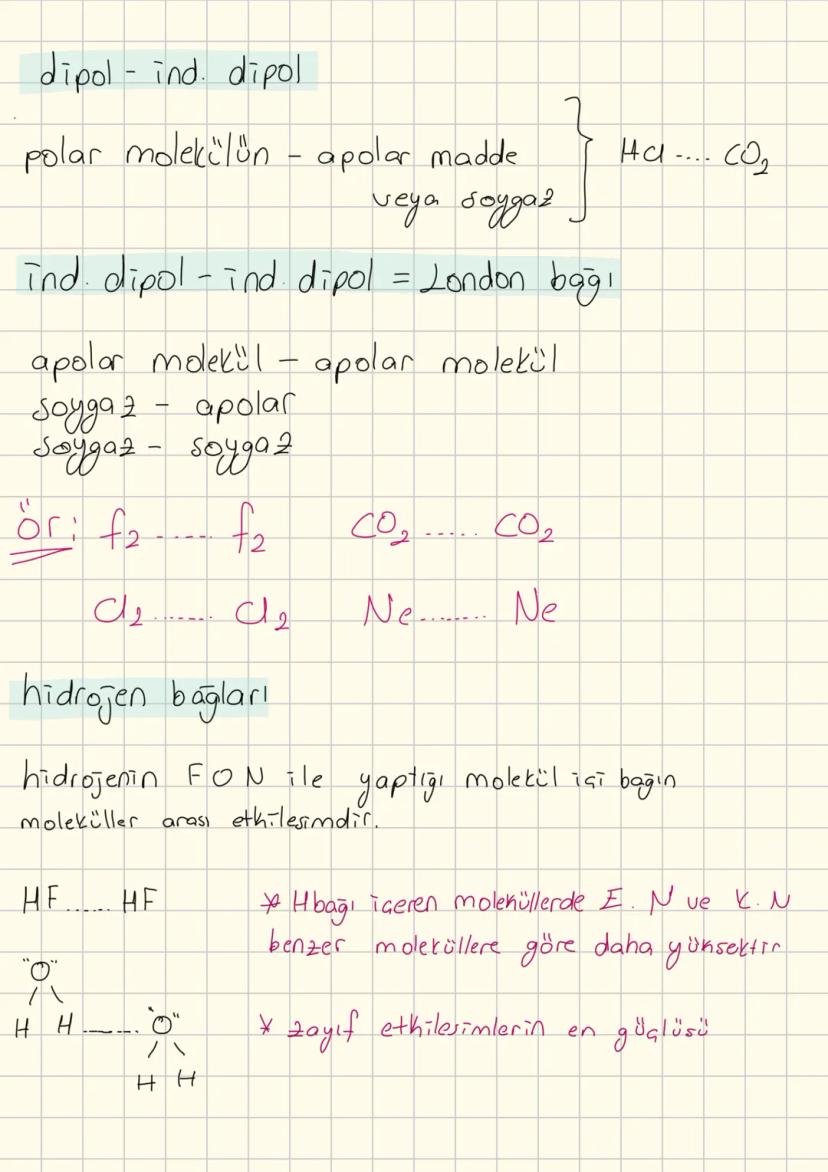 dipol - ind. dipol
polar molekülün - apolar madde } HCl .... CO₂
veya soygaz
ind. dipol - ind. dipol = London bağı
apolar molekül - apolar molekül
soygaz - apolar
soygaz - soygaz
ör: f₂ ..... f₂ CO₂ ..... CO₂
Cl₂ ...... Cl₂ Ne ....... Ne
hidrojen bağları
hidrojenin FON ile yaptığı molekül içi bağın
moleküller arası etkileşimdir.
HF ..... HF
* H bağı içeren moleküllerde E.N ve K.N
benzer moleküllere göre daha yüksektir
"O"
H H ...... "O"
H H
* zayıf etkileşimlerin en güçlüsü